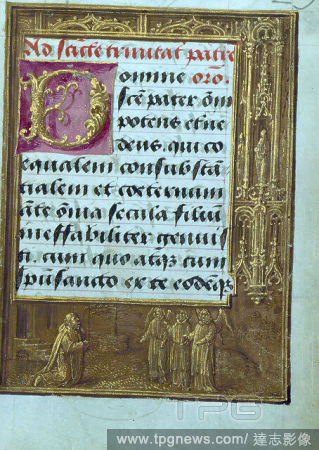 Ad sancte trinitat patre
Domine oro.
sce pater om
potens eterne
deus. qui co
equalem consubstan
tialem et coeternum
ante omnia secula filiu
ineffabiliter genuis
ti. cum quo atq cum
spu sancto ex te eodeq
TPG
www.tpgnews.com/ 達志影像